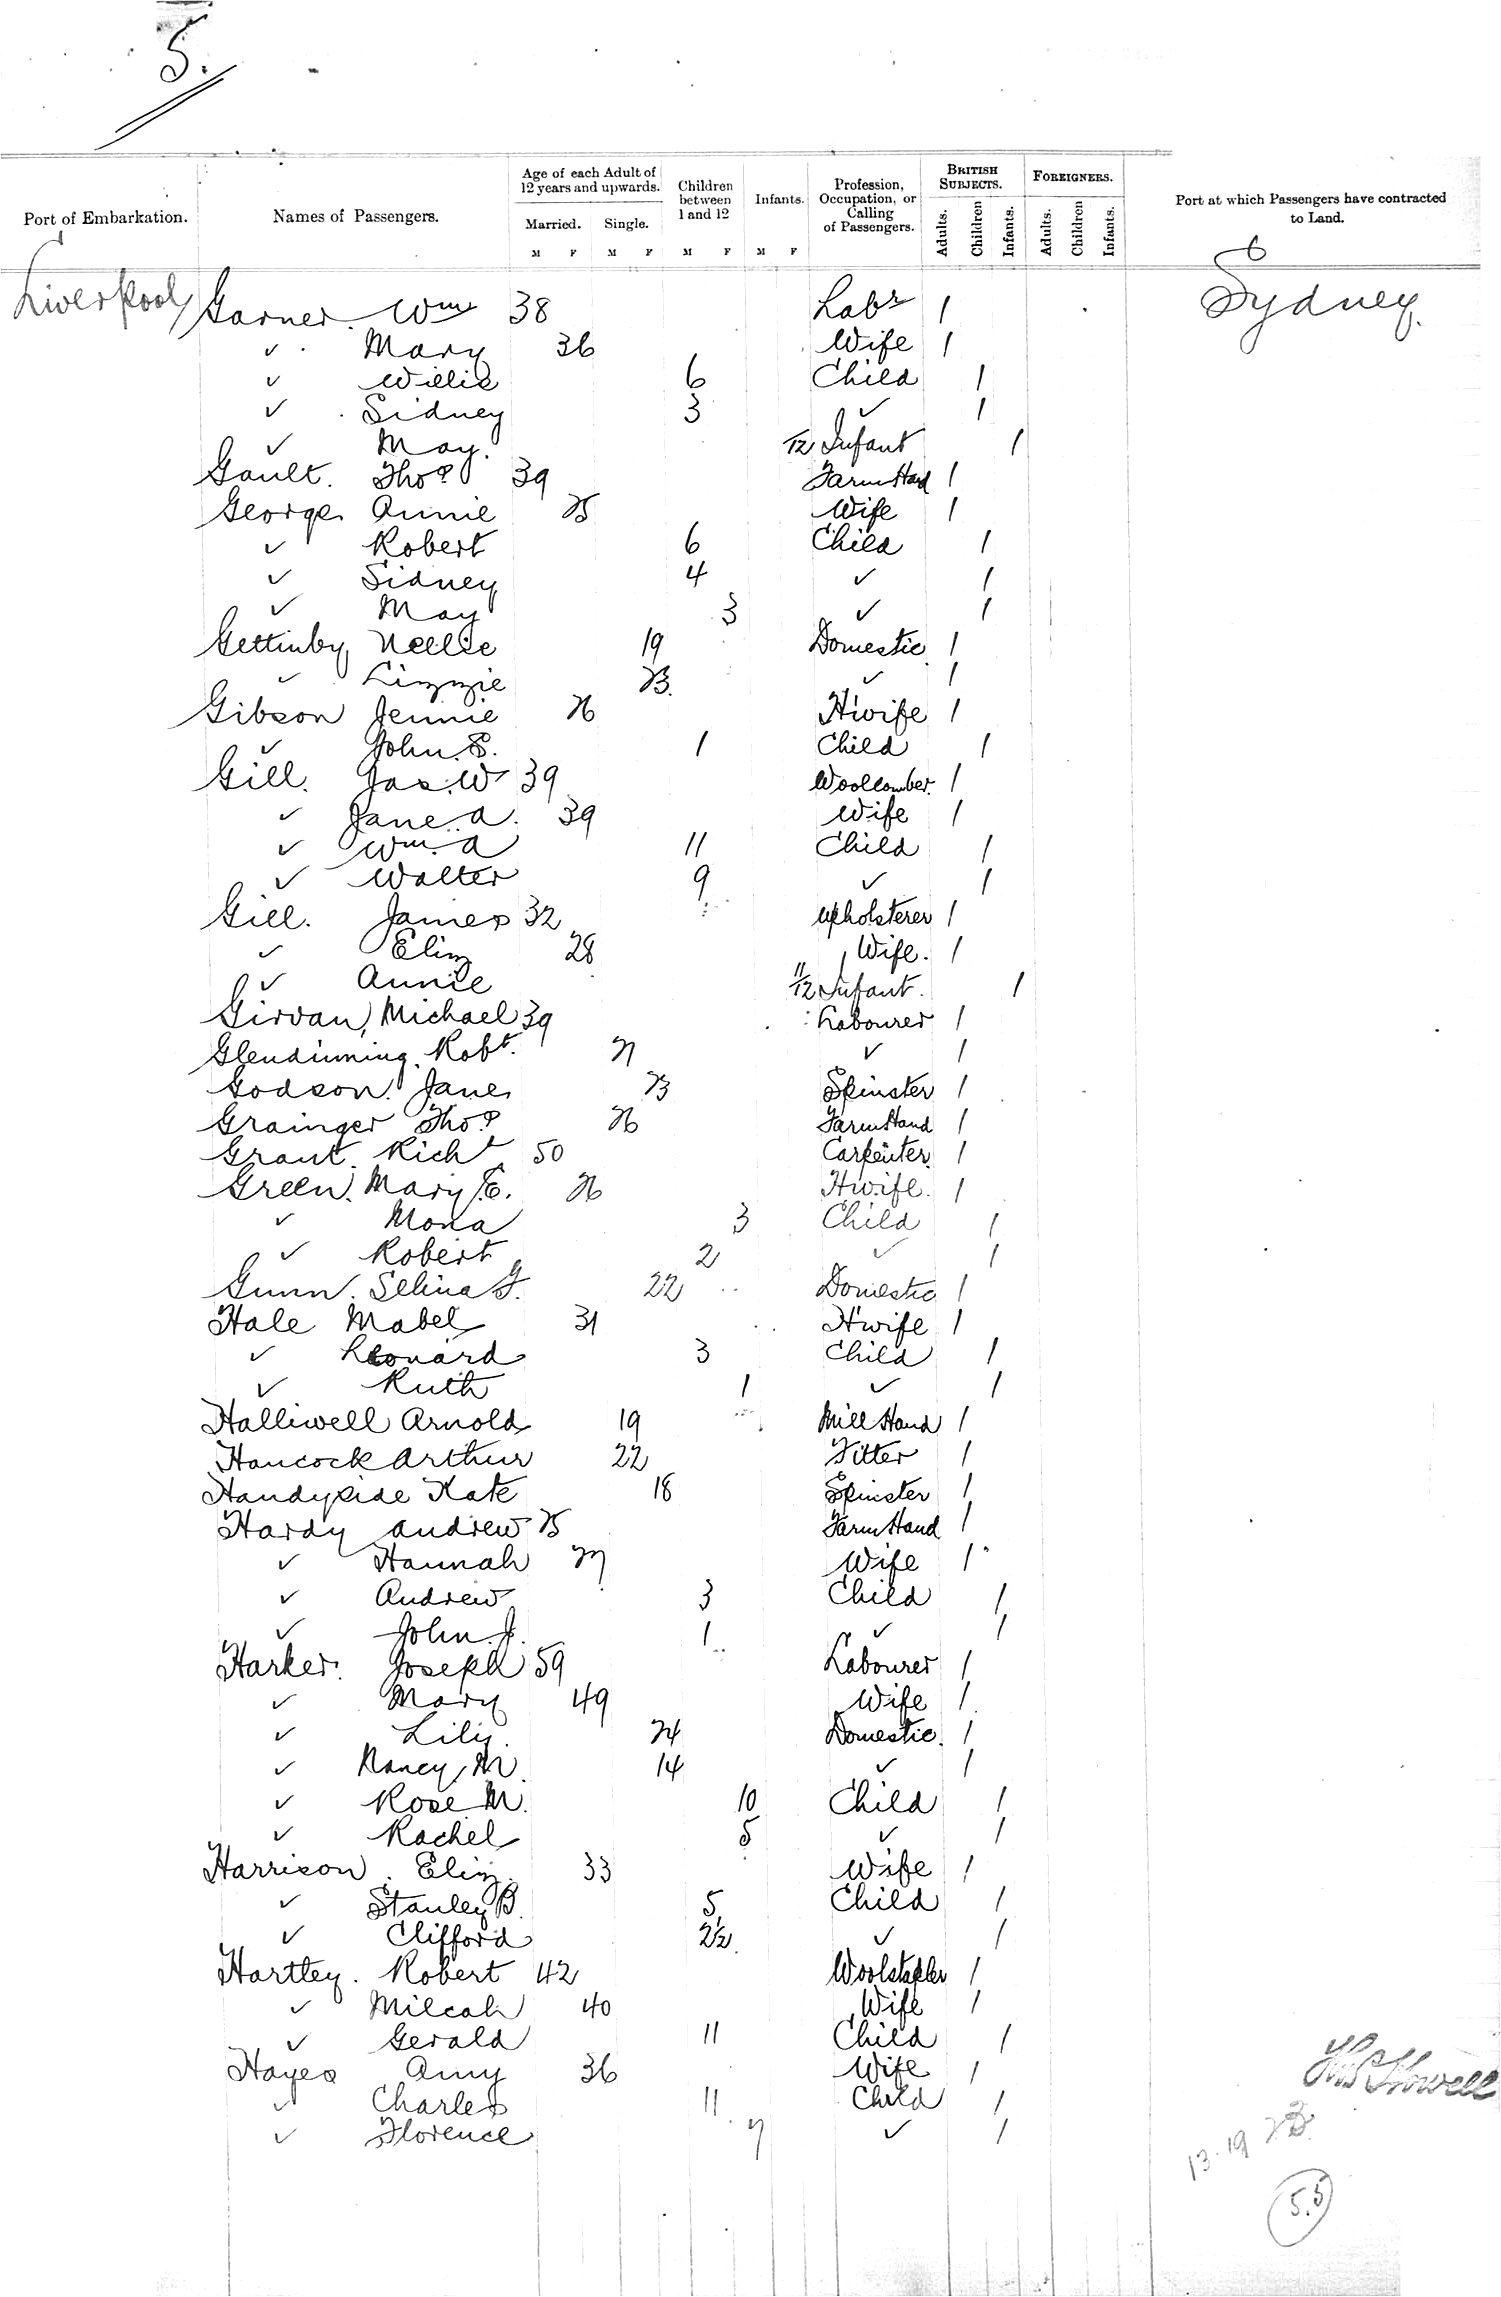 5.
Port of Embarkation. Names of Passengers. Age of each Adult of 12 years and upwards. Married. Single. Children between 1 and 12 Infants. Profession, Occupation, or Calling of Passengers. BRITISH SUBJECTS. Adults. Children Infants. FOREIGNERS. Adults. Children Infants. Port at which Passengers have contracted to Land.
M F M F M F M F
Liverpool Garner. Wm 38 Labr 1 Sydney
✓ Mary 36 Wife 1
✓ Willie 6 Child 1
✓ Sidney 3 ✓ 1
✓ May. /12 Infant 1
Gault. Thos 39 Farm Hand 1
George Annie 25 Wife 1
✓ Robert 6 Child 1
✓ Sidney 4 ✓ 1
✓ May 3 ✓ 1
Gettinby Nellie 19 Domestic 1
✓ Lizzie 23. ✓ 1
Gibson Jennie 26 H'wife 1
✓ John. S. 1 Child 1
Gill. Jas. W 39 Woolcomber. 1
✓ Jane. A. 39 Wife 1
✓ Wm. A 11 Child 1
✓ Walter 9 ✓ 1
Gill. James 32 Upholsterer 1
✓ Eliz 28 Wife. 1
✓ Annie 11/12 Infant. 1
Girvan, Michael 39 Labourer 1
Glendinning. Robt. 21 ✓ 1
Godson. Jane 23 Spinster 1
Grainger Thos 26 Farm Hand 1
Grant. Richd 50 Carpenter. 1
Green. Mary E. 26 H'wife. 1
✓ Mona 3 Child 1
✓ Robert 2 ✓ 1
Gunn. Selina G. 22 Domestic 1
Hale Mabel 31 H'wife 1
✓ Leonard 3 Child 1
✓ Ruth 1 ✓ 1
Halliwell Arnold 19 Mill Hand 1
Hancock Arthur 22 Fitter 1
Handyside Kate 18 Spinster 1
Hardy Andrew 25 Farm Hand 1
✓ Hannah 27 Wife 1
✓ Andrew 3 Child 1
✓ John. J. 1 ✓ 1
Harker. Joseph 59 Labourer 1
✓ Mary 49 Wife 1
✓ Lily. 24 Domestic. 1
✓ Nancy, M. 14 ✓ 1
✓ Rose M. 10 Child 1
✓ Rachel 5 ✓ 1
Harrison. Eliz. 33 Wife 1
✓ Stanley B. 5 Child 1
✓ Clifford 2½ ✓ 1
Hartley. Robert 42 Woolstapler 1
✓ Milcah 40 Wife 1
✓ Gerald 11 Child 1
Hayes Amy 36 Wife 1
✓ Charles 11 Child 1
✓ Florence 7 ✓ 1
Howell
13.19 23.
55